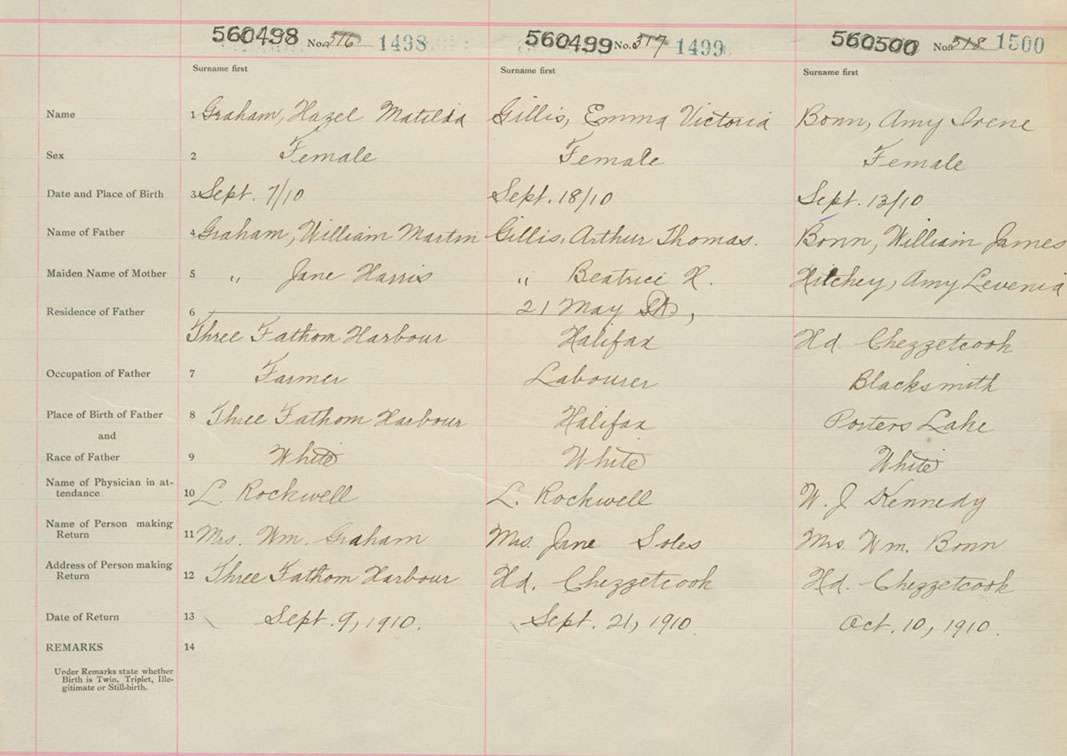 560498 No. 516 1498 560499 No. 517 1499 560500 No. 518 1500
Surname first Surname first Surname first
Name 1 Graham, Hazel Matilda Gillis, Emma Victoria Bonn, Amy Irene
Sex 2 Female Female Female
Date and Place of Birth 3 Sept. 7/10 Sept. 18/10 Sept. 13/10
Name of Father 4 Graham, William Martin Gillis, Arthur Thomas. Bonn, William James
Maiden Name of Mother 5 " Jane Harris " Beatrice H. Hitchey, Amy Levenia
Residence of Father 6 21 May St,
Three Fathom Harbour Halifax Hd. Chezzetcook
Occupation of Father 7 Farmer Labourer Blacksmith
Place of Birth of Father 8 Three Fathom Harbour Halifax Porters Lake
and
Race of Father 9 White White White
Name of Physician in at-
tendance 10 L. Rockwell L. Rockwell W. J. Kennedy
Name of Person making
Return 11 Mrs. Wm. Graham Mrs. Jane Soles Mrs. Wm. Bonn
Address of Person making
Return 12 Three Fathom Harbour Hd. Chezzetcook Hd. Chezzetcook
Date of Return 13 Sept. 9, 1910. Sept. 21, 1910. Oct. 10, 1910.
REMARKS 14
Under Remarks state whether
Birth is Twin, Triplet, Ille-
gitimate or Still-birth.